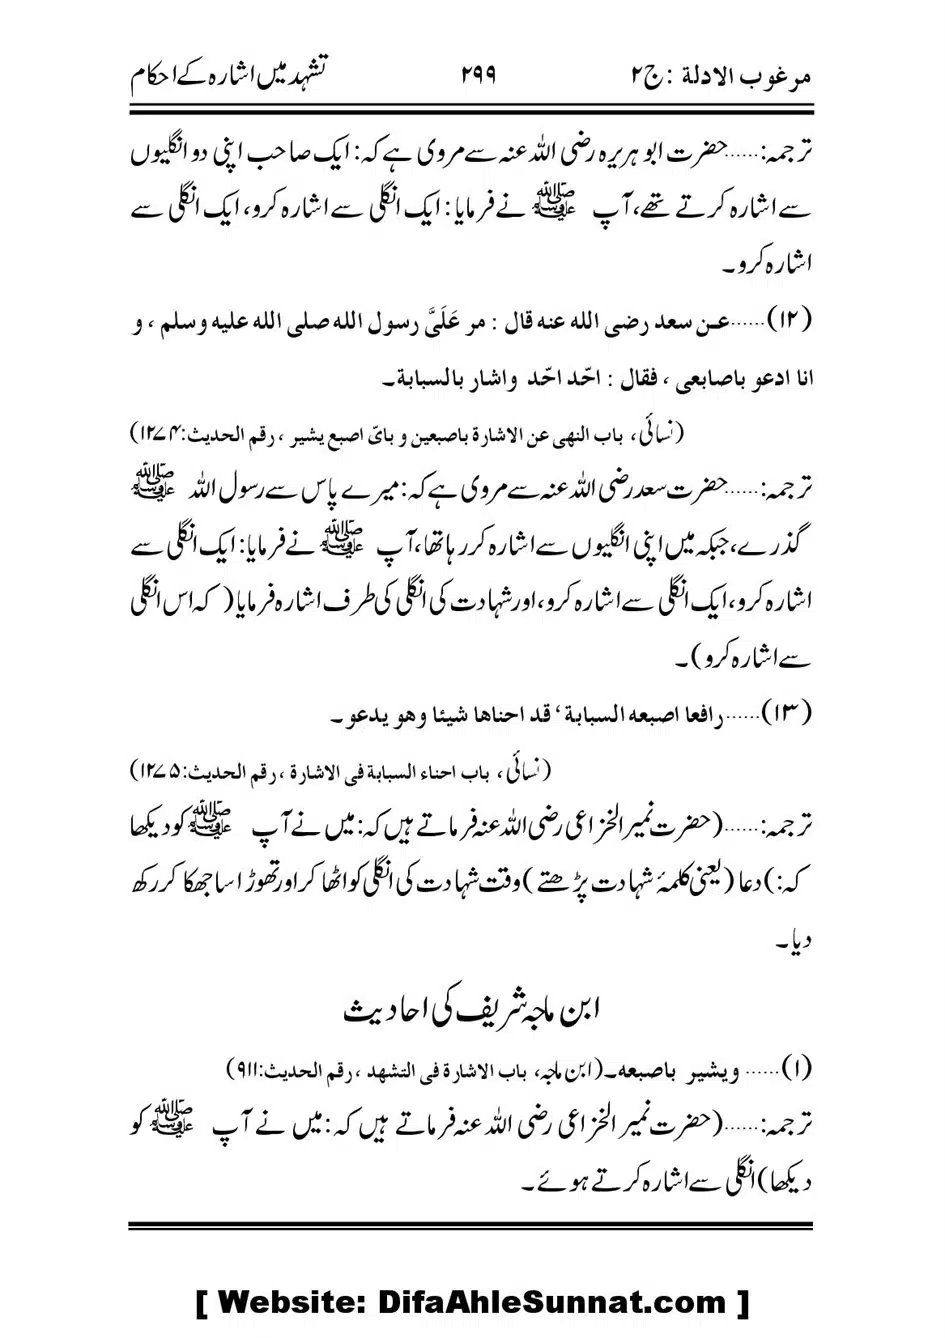 مرغوب الادلة : ج۲ ۲۹۹ تشہد میں اشارہ کے احکام
ترجمہ:......حضرت ابو ہریرہ رضی اللہ عنہ سے مروی ہے کہ: ایک صاحب اپنی دو انگلیوں
سے اشارہ کرتے تھے، آپ ﷺ نے فرمایا: ایک انگلی سے اشارہ کرو، ایک انگلی سے
اشارہ کرو۔
(۱۲)......عن سعد رضی الله عنه قال : مر عَلَیَّ رسول الله صلی الله علیه وسلم ، و
انا ادعو باصابعی ، فقال : احّد احّد واشار بالسبابة۔
(نسائی، باب النهی عن الاشارة باصبعین و بایّ اصبع یشیر ، رقم الحدیث:۱۲۷۴)
ترجمہ:......حضرت سعد رضی اللہ عنہ سے مروی ہے کہ: میرے پاس سے رسول اللہ ﷺ
گذرے، جبکہ میں اپنی انگلیوں سے اشارہ کر رہا تھا، آپ ﷺ نے فرمایا: ایک انگلی سے
اشارہ کرو، ایک انگلی سے اشارہ کرو، اور شہادت کی انگلی کی طرف اشارہ فرمایا ( کہ اس انگلی
سے اشارہ کرو)۔
(۱۳)......رافعا اصبعه السبابة ‘ قد احناها شیئا وهو یدعو۔
(نسائی، باب احناء السبابة فی الاشارة ، رقم الحدیث:۱۲۷۵)
ترجمہ:......(حضرت نمیر الخزاعی رضی اللہ عنہ فرماتے ہیں کہ: میں نے آپ ﷺ کو دیکھا
کہ:) دعا (یعنی کلمۂ شہادت پڑھتے) وقت شہادت کی انگلی کو اٹھا کر اور تھوڑا سا جھکا کر رکھ
دیا۔
ابن ماجہ شریف کی احادیث
(۱)...... ویشیر باصبعه۔(ابن ماجہ، باب الاشارة فی التشهد ، رقم الحدیث:۹۱۱)
ترجمہ:......(حضرت نمیر الخزاعی رضی اللہ عنہ فرماتے ہیں کہ: میں نے آپ ﷺ کو
دیکھا) انگلی سے اشارہ کرتے ہوئے۔
[ Website: DifaAhleSunnat.com ]